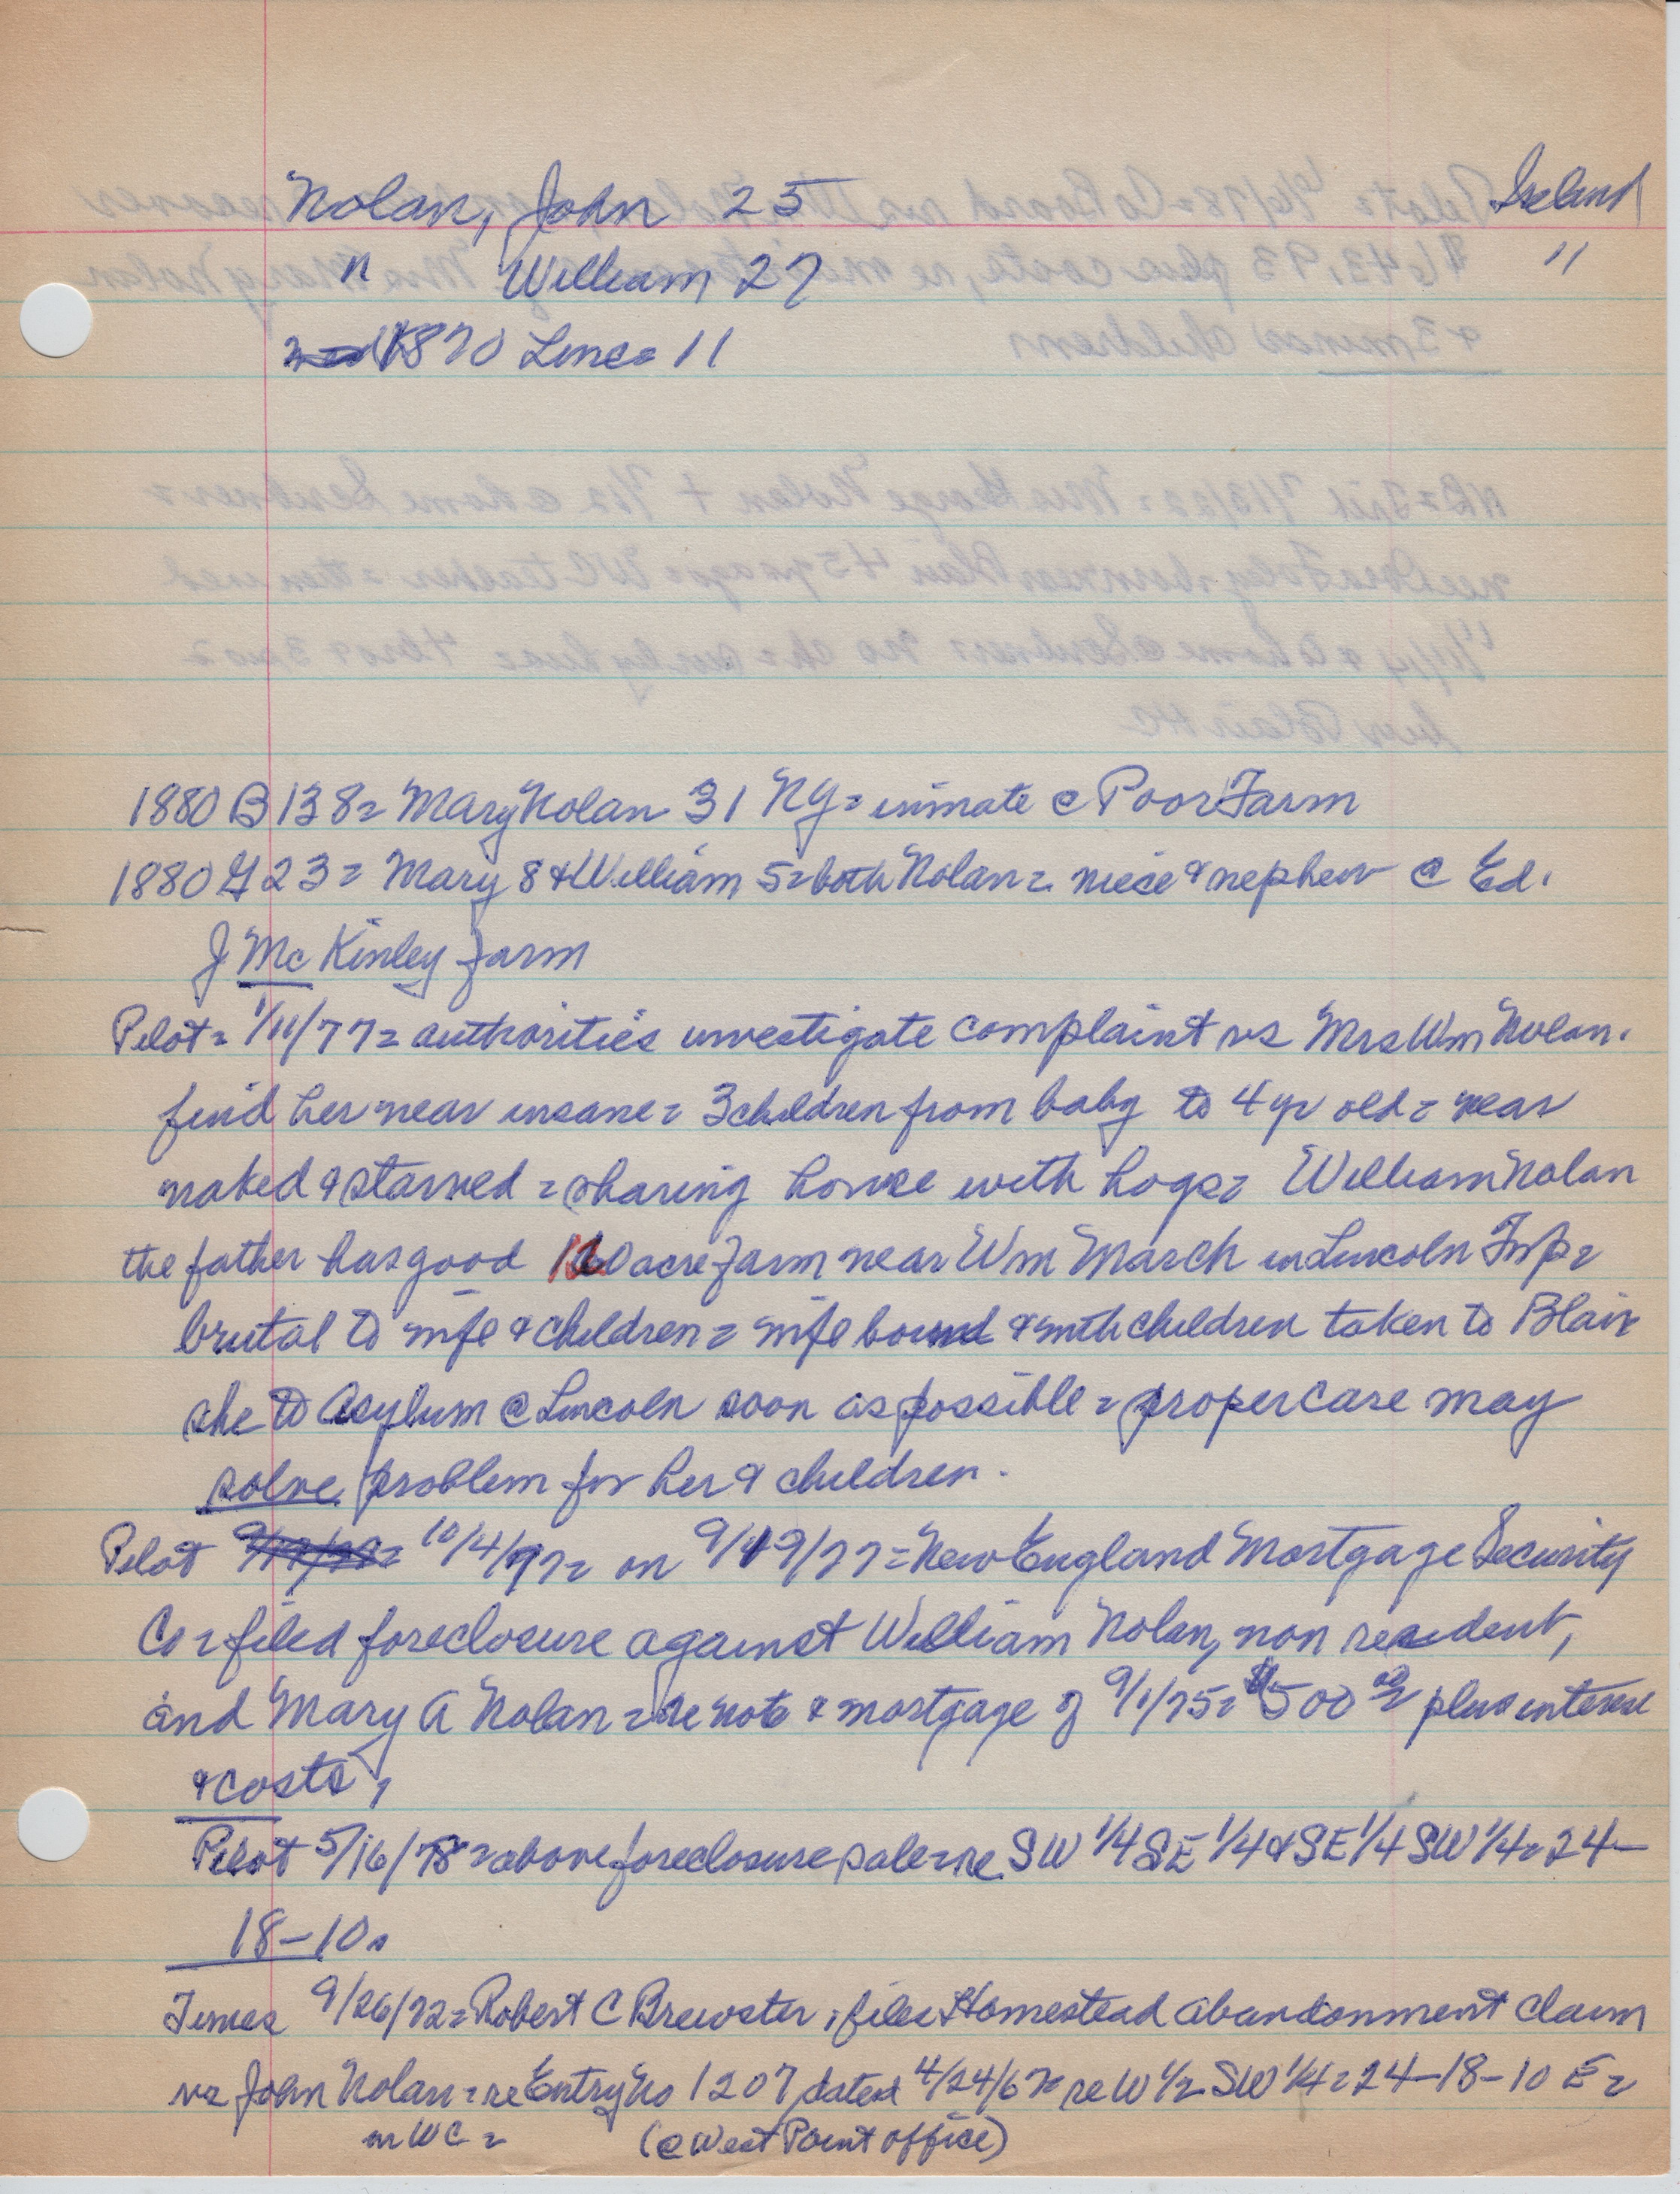 Nolan, John 25 Ireland
" William 27 "
1870 Linc= 11
1880 B 138= Mary Nolan 31 NY= inmate @ Poor Farm
1880 G 23= Mary 8 & William 5= both Nolan= niece & nephew @ Ed.
J McKinley farm
Pilot= 1/11/77= authorities investigate complaint vs Mrs Wm Nolan.
find her near insane= 3 children from baby to 4 yr old= near
naked & starved= sharing house with hogs= William Nolan
the father has good acre farm near Wm March in Lincoln Twp=
brutal to wife & children= wife bound & with children taken to Blair
she to Asylum @ Lincoln soon as possible= proper care may
solve problem for her & children.
Pilot 10/4/77= on 9/19/77= New England Mortgage Security
Co= filed foreclosure against William Nolan, non resident,
and Mary A Nolan= re note & mortgage of 9/1/75= $500 plus interest
& costs,
Pilot 5/16/78= above foreclosure sale= re SW 1/4 SE 1/4 & SE 1/4 SW 1/4= 24-
18-10.
Times 9/26/72= Robert C Brewster, files Homestead abandonment claim
vs John Nolan= re Entry No 1207 dated re W 1/2 SW 1/4= 24-18-10 E=
in WC= (@ West Point office)